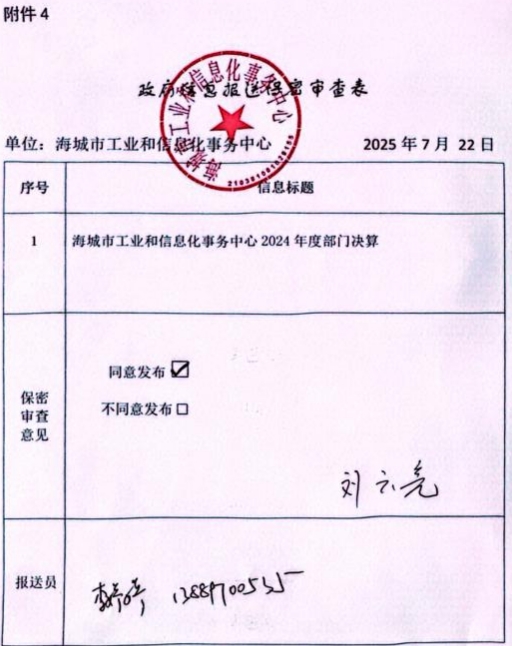 附件 4
政府信息报送保密审查表
单位：海城市工业和信息化事务中心 2025 年 7 月 22 日
海城市工业和信息化事务中心
序号 信息标题
1 海城市工业和信息化事务中心 2024 年度部门决算
保密
审查
意见
同意发布☑
不同意发布□
刘云亮
报送员